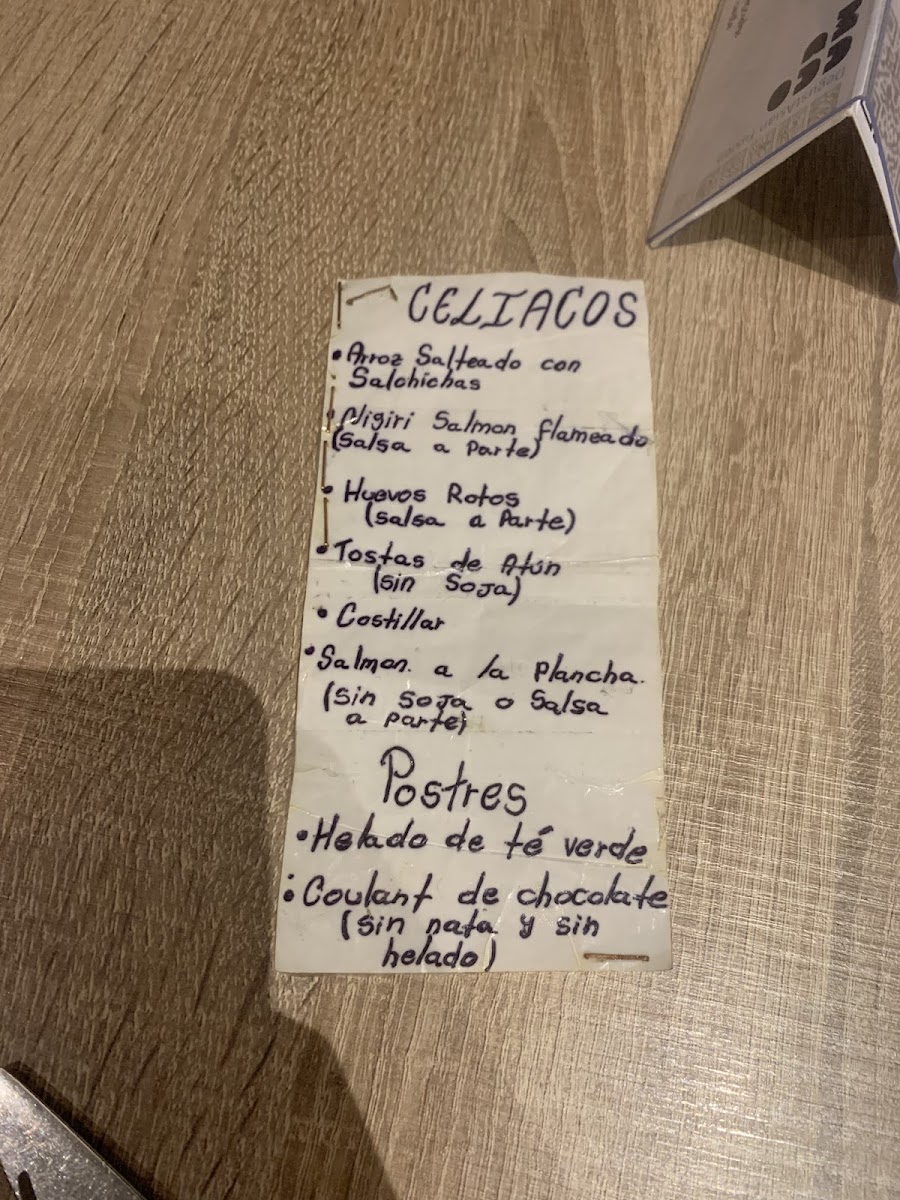 CELIACOS
• Arroz Salteado con
Salchichas
• Nigiri Salmon flameado
(Salsa a Parte)
• Huevos Rotos
(Salsa a Parte)
• Tostas de Atún
(sin Soja)
• Costillar
• Salmon. a la Plancha.
(Sin Soja o Salsa
a parte)
Postres
• Helado de té verde
• Coulant de chocolate
(sin nata y sin
helado)